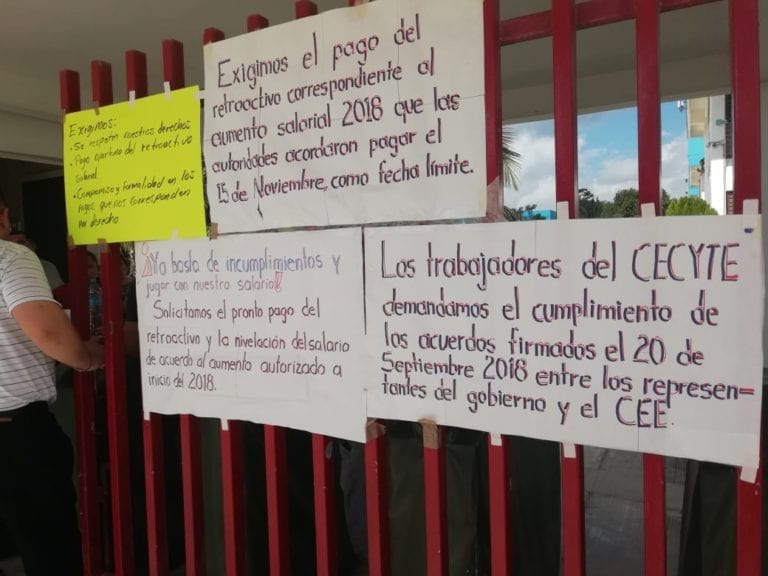 Exigimos:
• Se respeten nuestros derechos
• Pago oportuno del retroactivo
salarial
• Compromiso y formalidad en los
pagos que nos corresponden
por derecho.
Exigimos el pago del
retroactivo correspondiente al
aumento salarial 2018 que las
autoridades acordaron pagar el
15 de Noviembre, como fecha límite.
¡Ya basta de incumplimientos y
jugar con nuestro salario!
Solicitamos el pronto pago del
retroactivo y la nivelación del salario
de acuerdo al aumento autorizado a
inicio del 2018.
Los trabajadores del CECYTE
demandamos el cumplimiento de
los acuerdos firmados el 20 de
Septiembre 2018 entre los represen=
tantes del gobierno y el CEE.